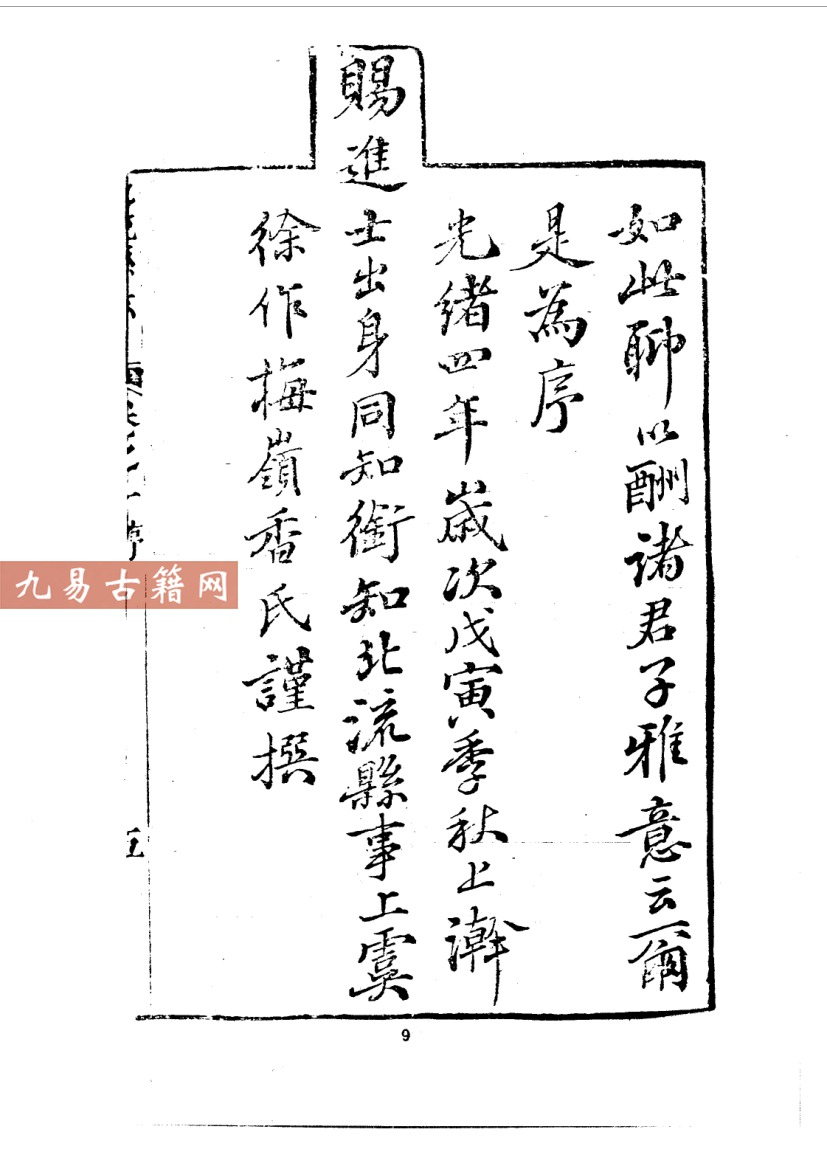 如此聊以酬諸君子雅意云爾
是為序
光緒四年歲次戊寅季秋上澣
賜進士出身同知銜知北流縣事上虞
徐作梅嶺香氏謹撰
序
五
九易古籍网
9